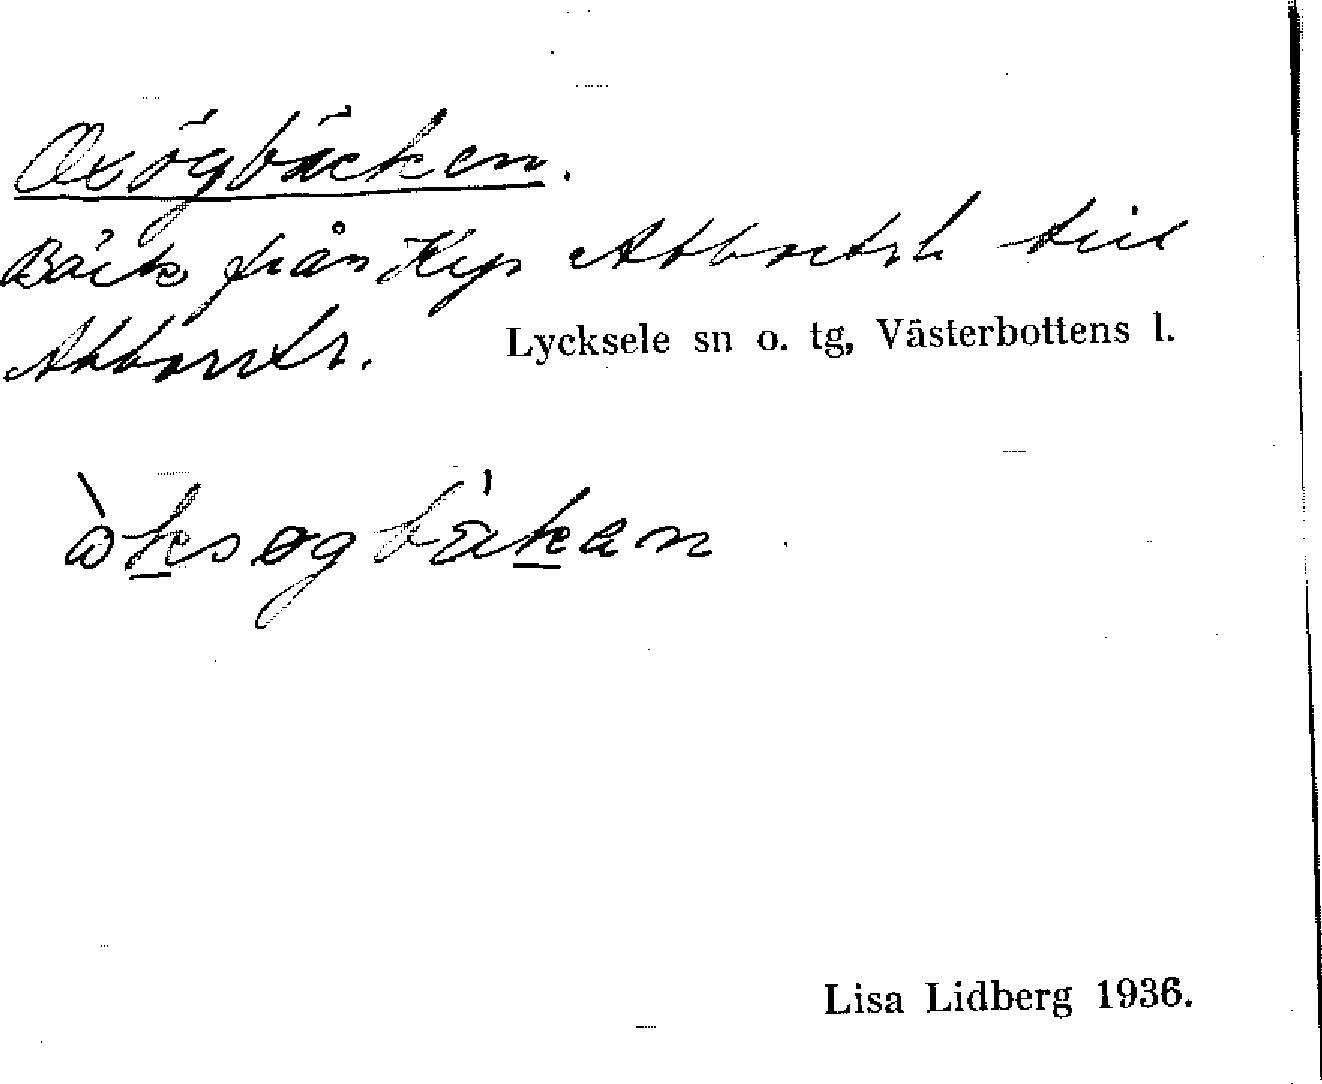 Oxögbäcken.
Bäck från Kyp Abborrtrsk till
Abborrtr.
Lycksele sn o. tg, Västerbottens l.
òksøgbä́kan
Lisa Lidberg 1936.